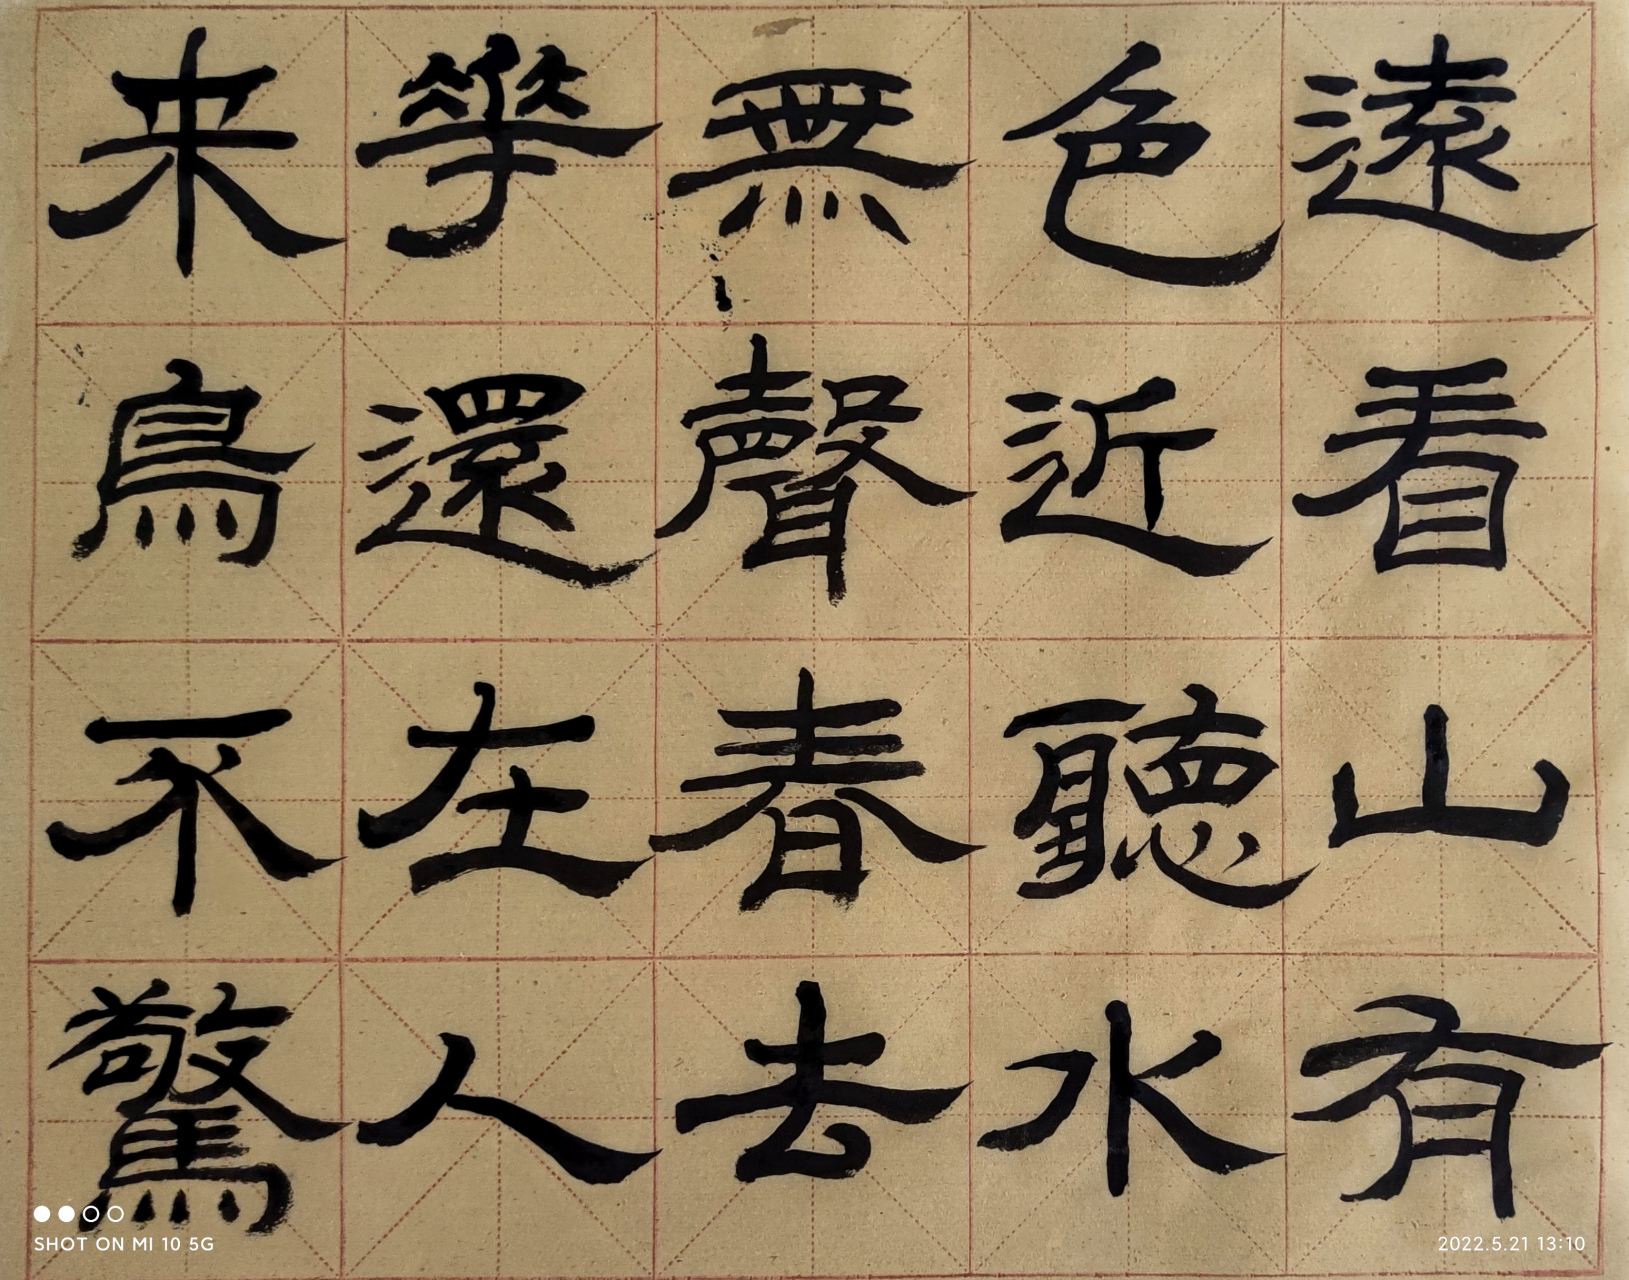 遠看山有
色近聽水
無聲春去
華還在人
来鳥不驚
SHOT ON MI 10 5G
2022.5.21 13:10